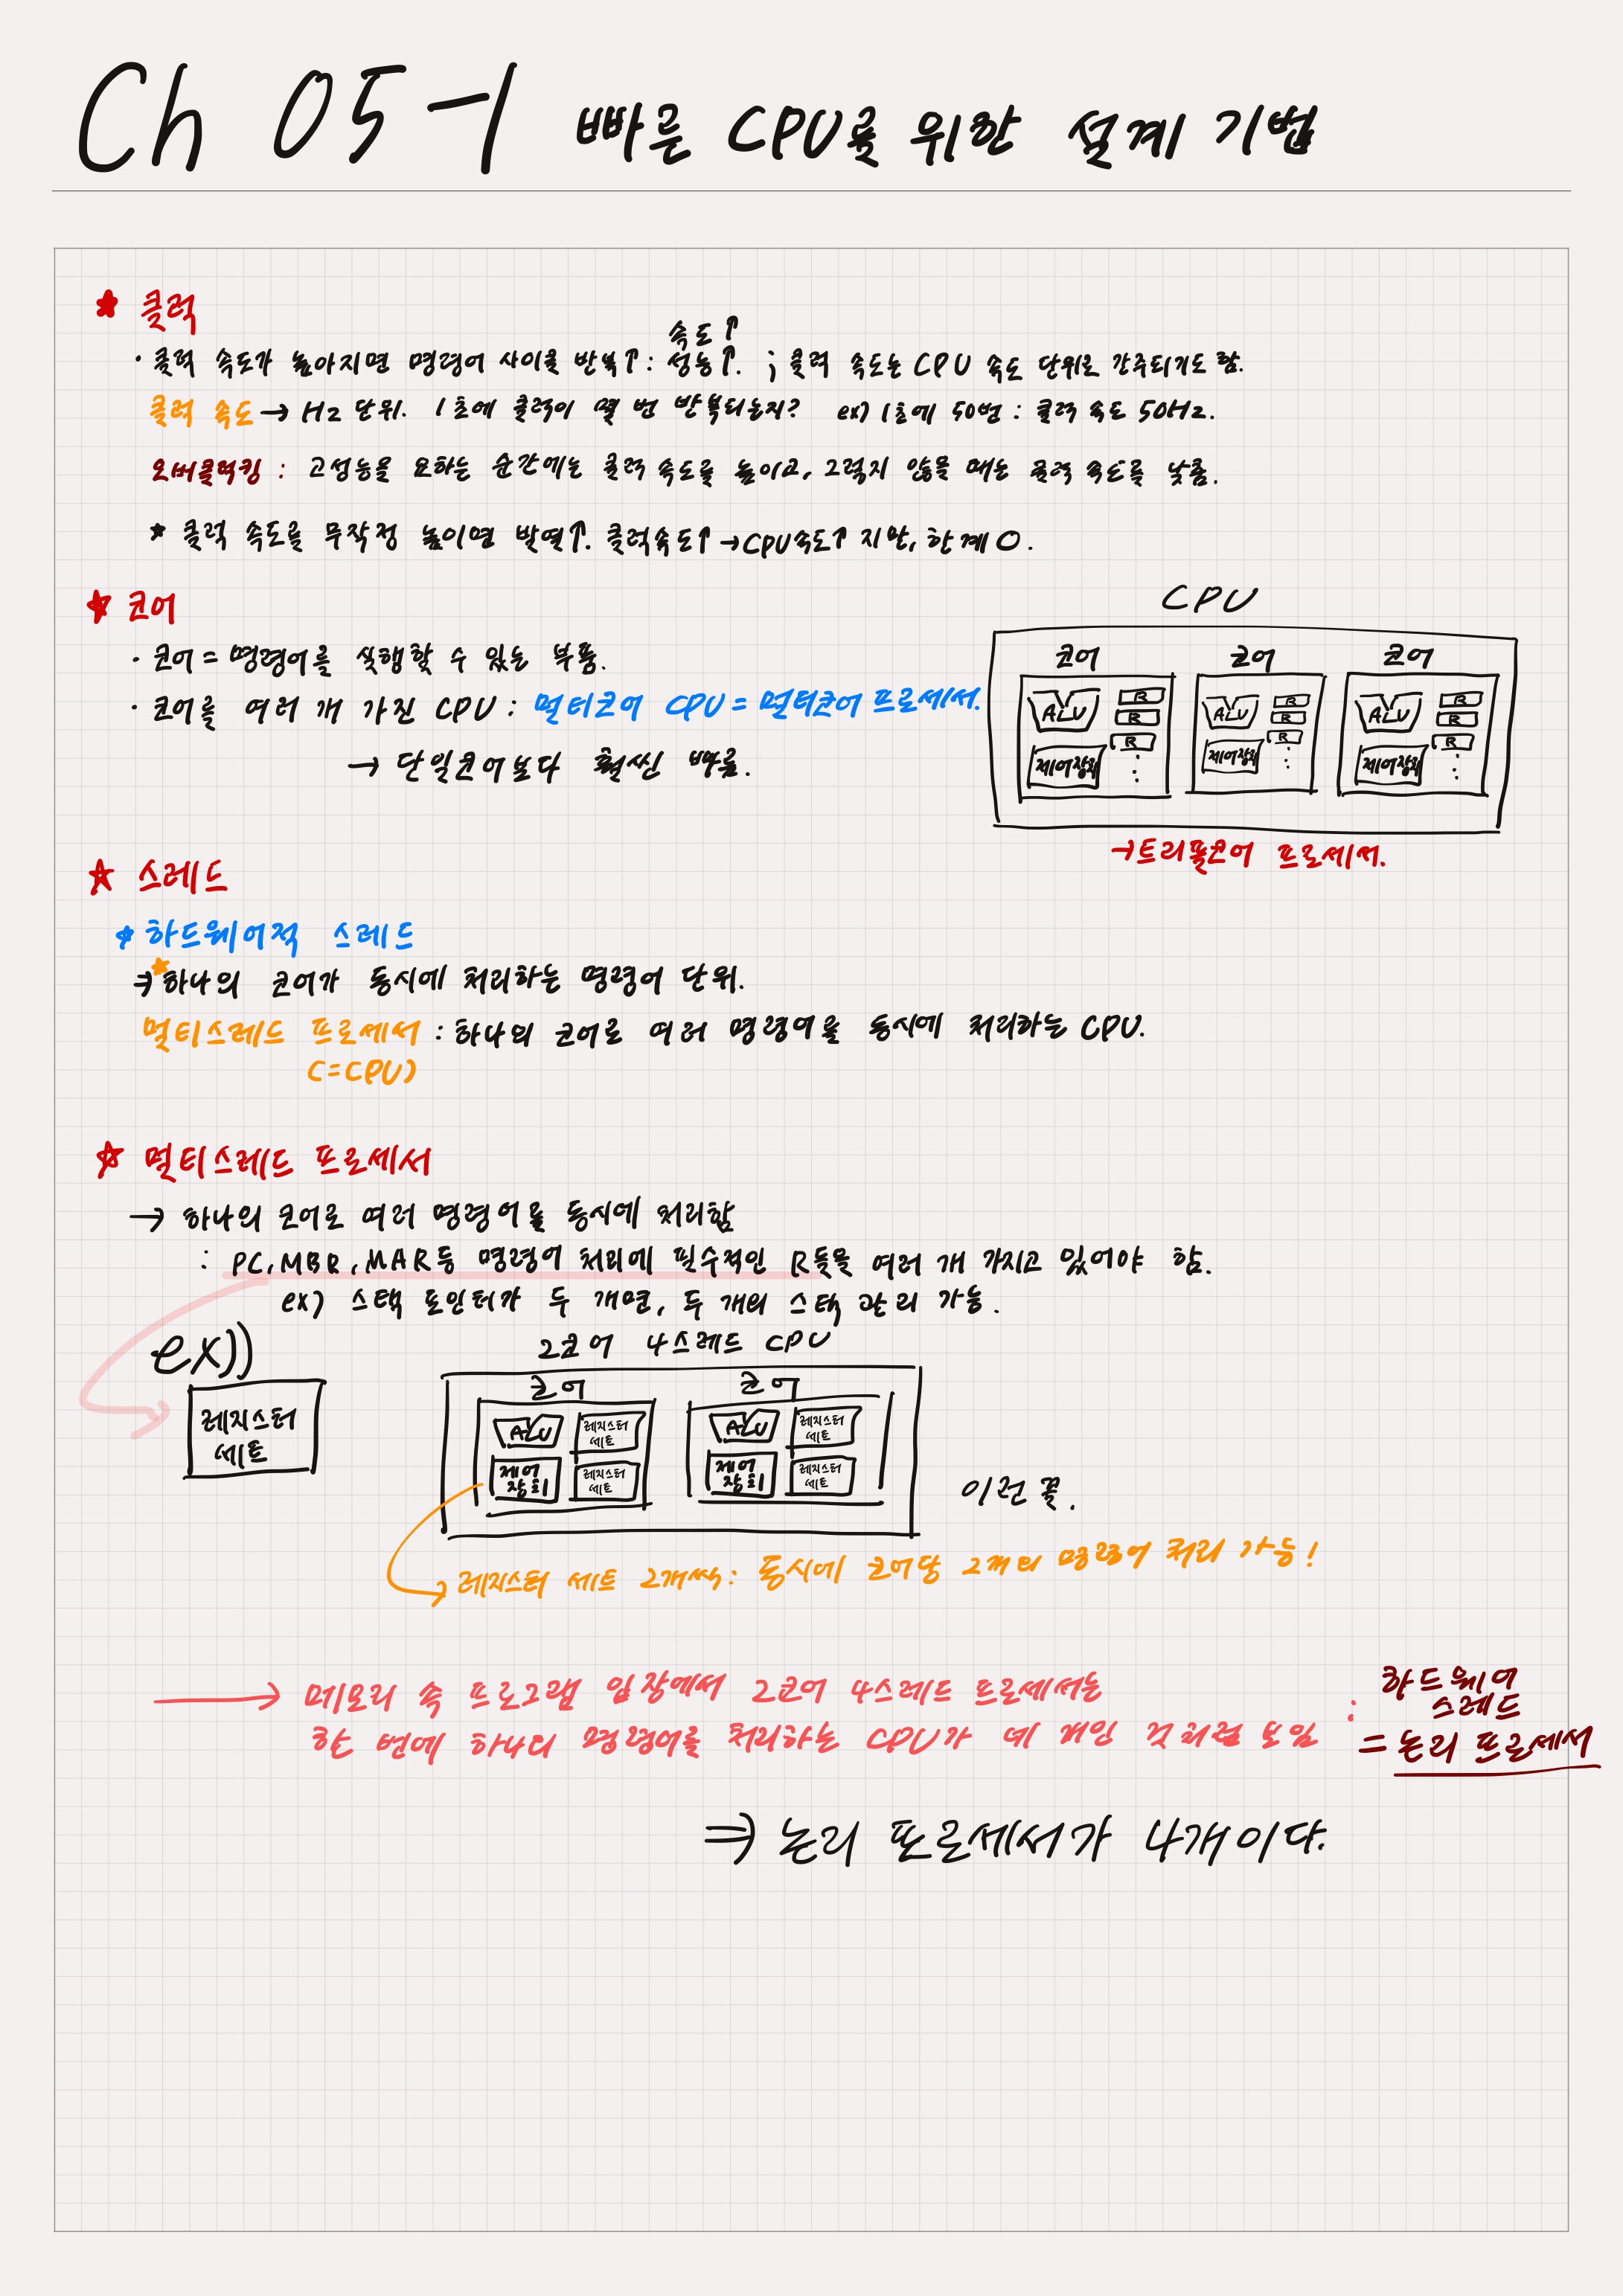 Ch 05-1 빠른 CPU를 위한 설계 기법
★ 클럭
속도↑
· 클럭 속도가 높아지면 명령어 사이클 반복↑: 성능↑. ; 클럭 속도는 CPU 속도 단위로 간주되기도 함.
클럭 속도 → Hz 단위. 1초에 클럭이 몇 번 반복되는지? ex) 1초에 50번 : 클럭 속도 50Hz.
오버클럭킹 : 고성능을 요하는 순간에는 클럭 속도를 높이고, 그렇지 않을 때는 클럭 속도를 낮춤.
★ 클럭 속도를 무작정 높이면 발열↑. 클럭속도↑ → CPU속도↑ 지만, 한계 O.
★ 코어
· 코어 = 명령어를 실행할 수 있는 부품.
· 코어를 여러 개 가진 CPU : 멀티코어 CPU = 멀티코어 프로세서.
→ 단일코어보다 훨씬 빠름.
CPU
코어 코어 코어
ALU R ALU R ALU R
R R R
제어장치 R 제어장치 R 제어장치 R
→트리플코어 프로세서.
★ 스레드
* 하드웨어적 스레드
⇒★하나의 코어가 동시에 처리하는 명령어 단위.
멀티스레드 프로세서 : 하나의 코어로 여러 명령어를 동시에 처리하는 CPU.
(=CPU)
★ 멀티스레드 프로세서
→ 하나의 코어로 여러 명령어를 동시에 처리함
: PC, MBR, MAR등 명령어 처리에 필수적인 R들을 여러 개 가지고 있어야 함.
ex) 스택 포인터가 두 개면, 두 개의 스택 관리 가능.
ex))
레지스터
세트
2코어 4스레드 CPU
코어 코어
ALU 레지스터 세트 ALU 레지스터 세트
제어장치 레지스터 세트 제어장치 레지스터 세트
이런 꼴.
레지스터 세트 2개씩: 동시에 코어당 2개의 명령어 처리 가능!
→ 메모리 속 프로그램 입장에서 2코어 4스레드 프로세서는
한 번에 하나의 명령어를 처리하는 CPU가 네 개인 것처럼 보임
: 하드웨어
스레드
= 논리 프로세서
⇒ 논리 프로세서가 4개이다.